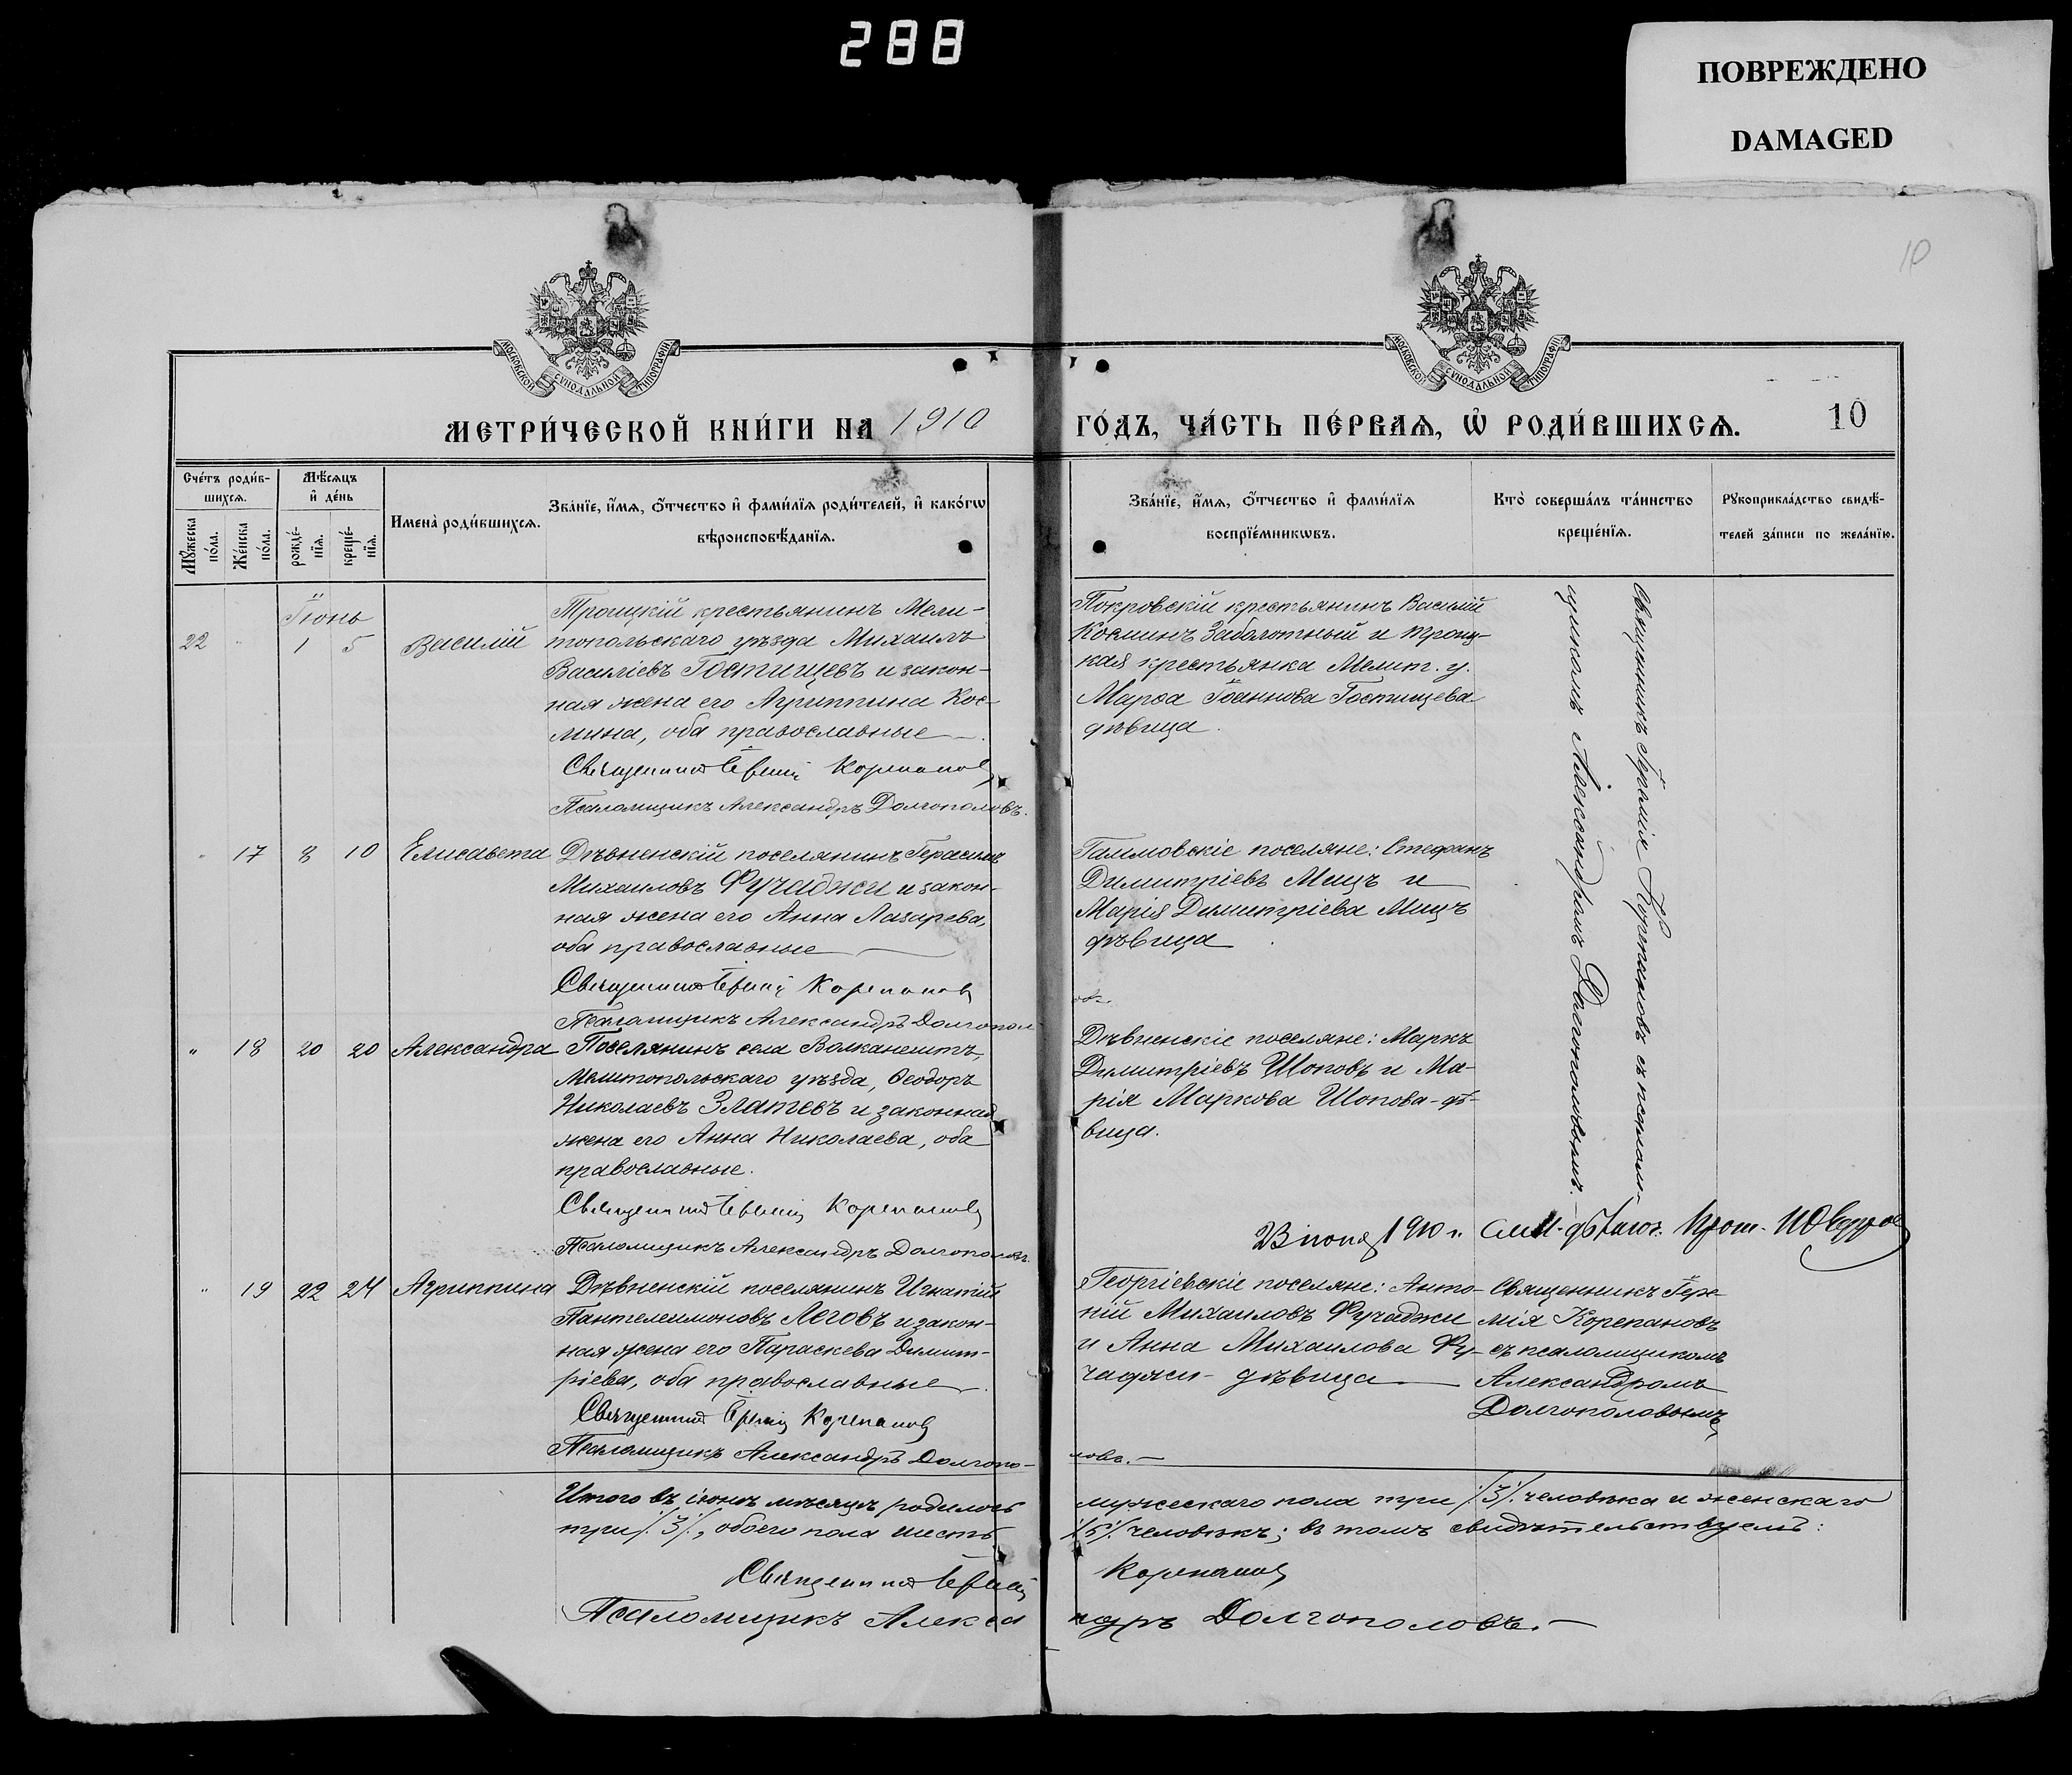 288
ПОВРЕЖДЕНО
DAMAGED
10
МОСКОВСКОЙ СУНОДАЛЬНОЙ ТИПОГРАФІИ
МОСКОВСКОЙ СУНОДАЛЬНОЙ ТИПОГРАФІИ
МЕТРИ́ЧЕСКОЙ КНИ́ГИ НА 1910
ГО́ДЪ, ЧА́СТЬ ПЕ́РВАѦ, Ѡ҆ РОДИ́ВШИХСѦ.
10
Сче́тъ роди́в-
шихсѧ.
Мꙋ́жеска
по́ла.
Же́нска
по́ла.
Мѣ́сѧцъ
и҆ де́нь
рожде́-
нїѧ.
креще́-
нїѧ.
Имена̀ роди́вшихсѧ.
Зва́нїе, и҆́мѧ, ѻ҆́тчество и҆ фами́лїѧ роди́телей, и҆ како́гѡ
вѣроисповѣ́данїѧ.
Зва́нїе, и҆́мѧ, ѻ҆́тчество и҆ фами́лїѧ
воспрїе́мникѡвъ.
Кто̀ соверша́лъ та́инство
креще́нїѧ.
Рꙋкоприкла́дство свидѣ́-
телей за́писи по жела́нїю.
Іюнь
22 " 1 5 Василій
Троицкій крестьянинъ Мели-
топольскаго уѣзда Михаилъ
Василіевъ Гостищевъ и закон-
ная жена его Агриппина Кос-
мина, оба православные
Священникъ Іеремій Корепановъ
Псаломщикъ Александръ Долгополовъ.
Покровскій крестьянинъ Василій
Косминъ Заболотный и Троиц-
кая крестьянка Мелит. у.
Марѳа Іоаннова Гостищева
дѣвица.
Священникъ Іеремія Корепановъ съ псалом-
щикомъ Александромъ Долгополовымъ.
" 17 8 10 Елисавета
Дѣвненскій поселянинъ Герасимъ
Михаиловъ Фучаджи и закон-
ная жена его Анна Лазарева,
оба православные
Священникъ Іеремій Корепановъ
Псаломщикъ Александръ Долгопол-
Гаммовскіе поселяне: Стефанъ
Димитріевъ Мицъ и
Марія Димитріева Мицъ
дѣвица
овъ.
" 18 20 20 Александра
Поселянинъ села Волканештъ,
Мелитопольскаго уѣзда, Ѳеодоръ
Николаевъ Златевъ и законная
жена его Анна Николаева, оба
православные.
Священникъ Іеремій Корепановъ
Псаломщикъ Александръ Долгополовъ.
Дѣвненскіе поселяне: Маркъ
Димитріевъ Шоповъ и Ма-
рія Маркова Шопова - дѣ-
вица.
23 іюня 1910 г.
" 19 22 24 Агриппина
Дѣвненскій поселянинъ Игнатій
Пантелеимоновъ Леговъ и закон-
ная жена его Параскева Димит-
ріева, оба православные
Священникъ Іеремій Корепановъ
Псаломщикъ Александръ Долгопо-
Георгіевскіе поселяне: Анто-
ній Михаиловъ Фучаджи
и Анна Михаилова Фу-
чаджи - дѣвица
Священникъ Іере-
мія Корепановъ
съ псаломщикомъ
Александромъ
Долгополовымъ
ловъ.
Итого въ іюнѣ мѣсяцѣ родилось мужескаго пола три /:3/: человѣка и женскаго
три /:3/:, обоего пола шесть /:6/: человѣкъ; въ томъ свидѣтельствуемъ:
Священникъ Іеремій Корепановъ
Псаломщикъ Александръ Долгополовъ.